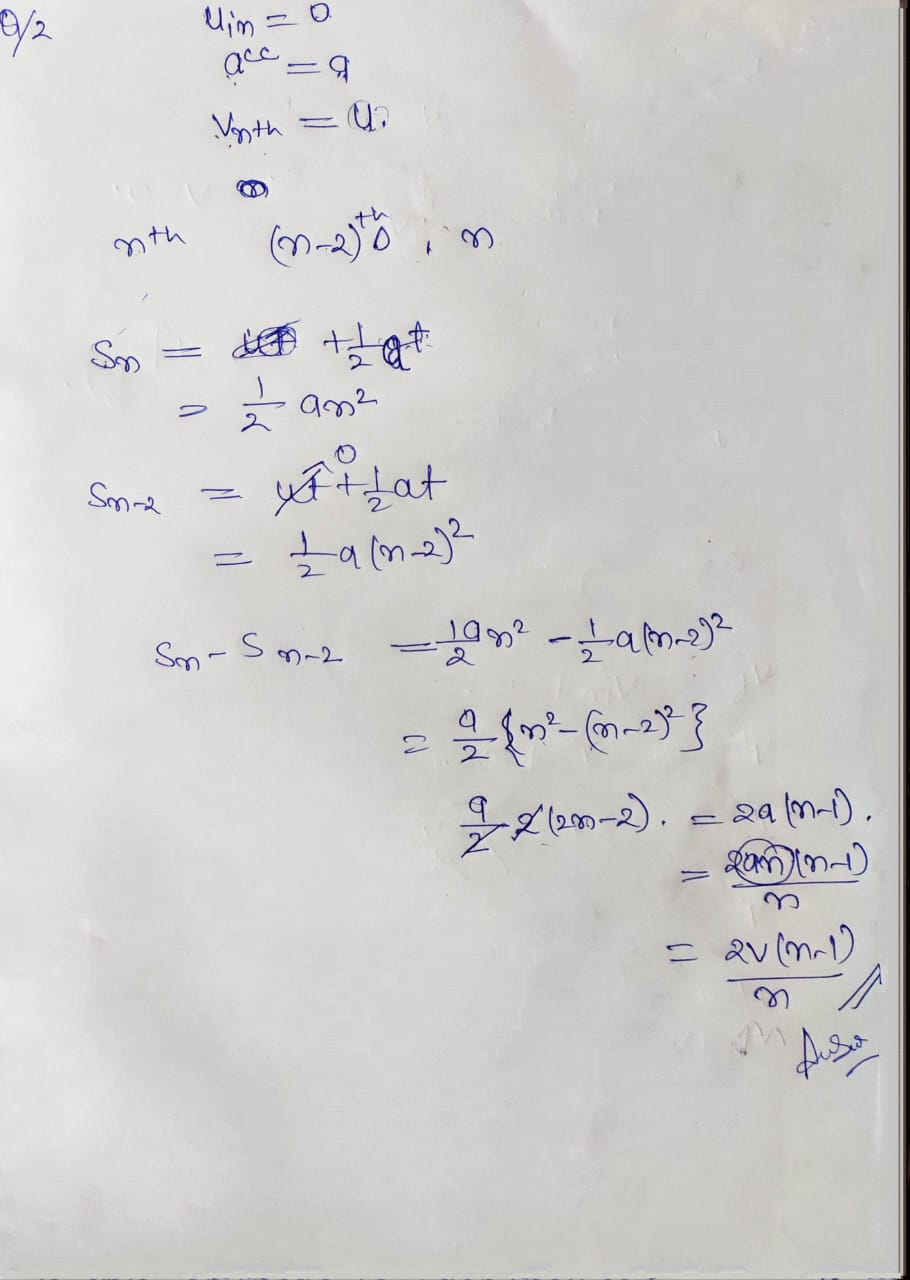 Q/2
Uin = 0
acc = a
Vnth = U.
nth (n-2)th, n
Sn = +1/2 at
= 1/2 an²
Sn-2 = ut 0 + 1/2 at
= 1/2 a(n-2)²
Sn - Sn-2 = 1/2 an² - 1/2 a(n-2)²
= a/2 {n² - (n-2)²}
a/2 2(2n-2). = 2a(n-1).
= 2an(n-1)/n
= 2v(n-1)/n